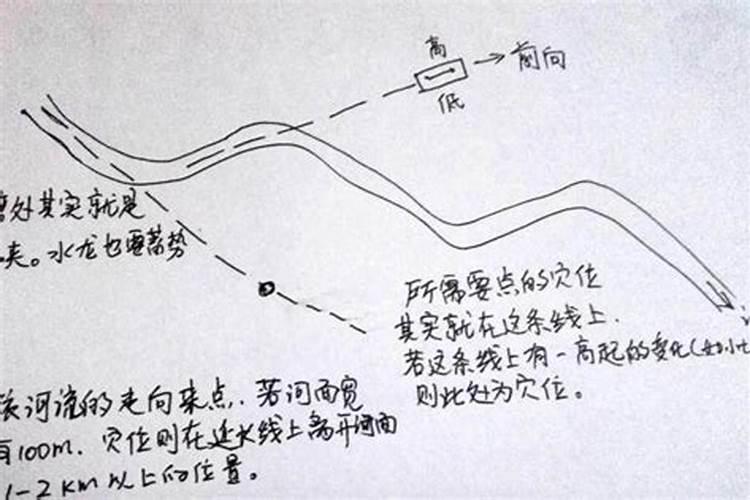 高
前向
低
弯处其实就是
夹。水龙也要蓄势
所需要点的穴位
其实就在这条线上.
若这条线上有一高起的变化(如小
则此处为穴位。
河流的走向来点.若河面宽
有100m.穴位则在延长线上离开河面
1-2km以上的位置。